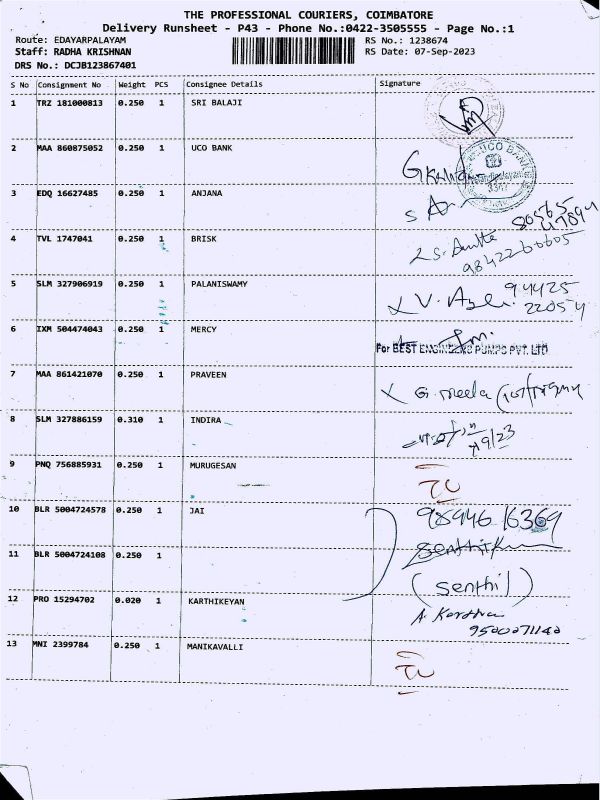 THE PROFESSIONAL COURIERS, COIMBATORE
Delivery Runsheet - P43 - Phone No.:0422-3505555 - Page No.:1
Route: EDAYARPALAYAM RS No.: 1238674
Staff: RADHA KRISHNAN RS Date: 07-Sep-2023
DRS No.: DCJB123867401
S No Consignment No Weight PCS Consignee Details Signature
1 TRZ 181000813 0.250 1 SRI BALAJI
2 MAA 860875052 0.250 1 UCO BANK
UCO BANK
3 EDQ 16627485 0.250 1 ANJANA
4 TVL 1747041 0.250 1 BRISK
9842260605
5 SLM 327906919 0.250 1 PALANISWAMY
94425
22054
6 IXM 504474043 0.250 1 MERCY
For BEST ENGINEERS PUMPS PVT. LTD
7 MAA 861421070 0.250 1 PRAVEEN
8 SLM 327886159 0.310 1 INDIRA
9 PNQ 756885931 0.250 1 MURUGESAN
10 BLR 5004724578 0.250 1 JAI
98946 16369
11 BLR 5004724108 0.250 1
(Senthil)
12 PRO 15294702 0.020 1 KARTHIKEYAN
9500071140
13 MNI 2399784 0.250 1 MANIKAVALLI